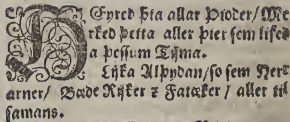 HEyred þta allar Þioder/ Me
rked þetta aller þier sem lifed
a þessum Tijma.
Lijka Alþydan/ so sem Herr
arner/ Bæde Rijker z Fatæker/ aller til
samans.